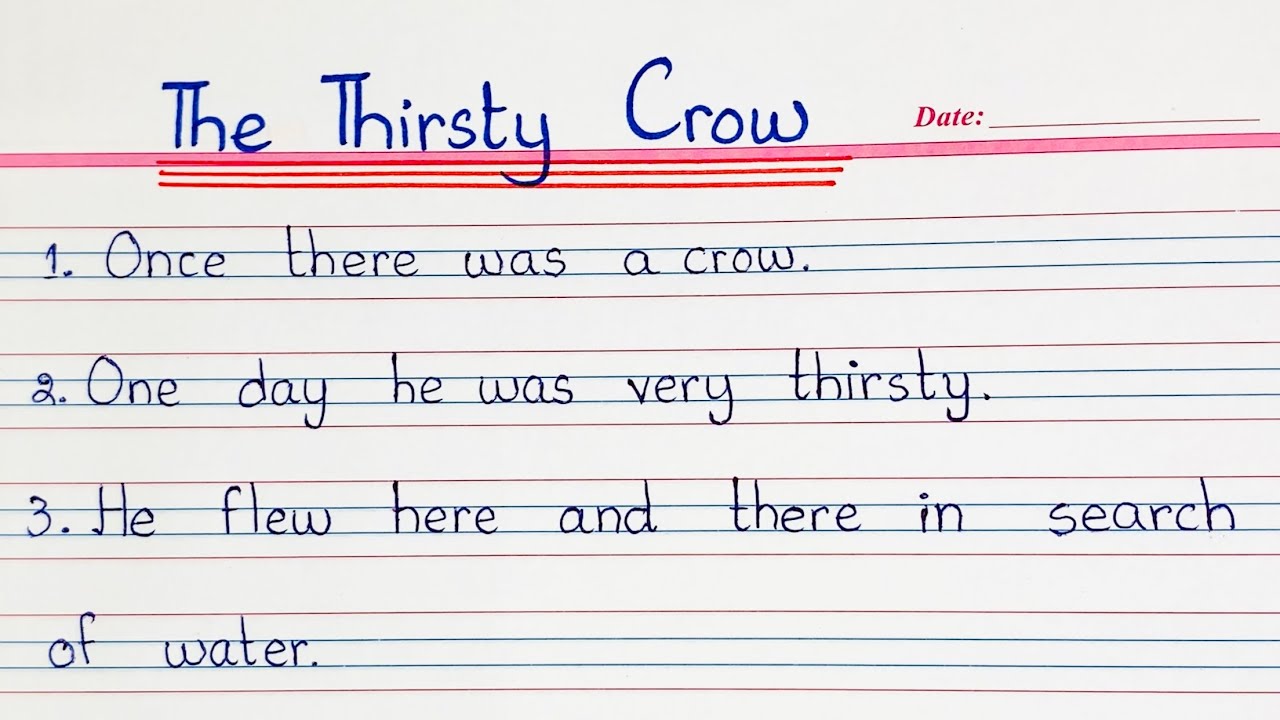 The Thirsty Crow
Date:
1. Once there was a crow.
2. One day he was very thirsty.
3. He flew here and there in search
of water.